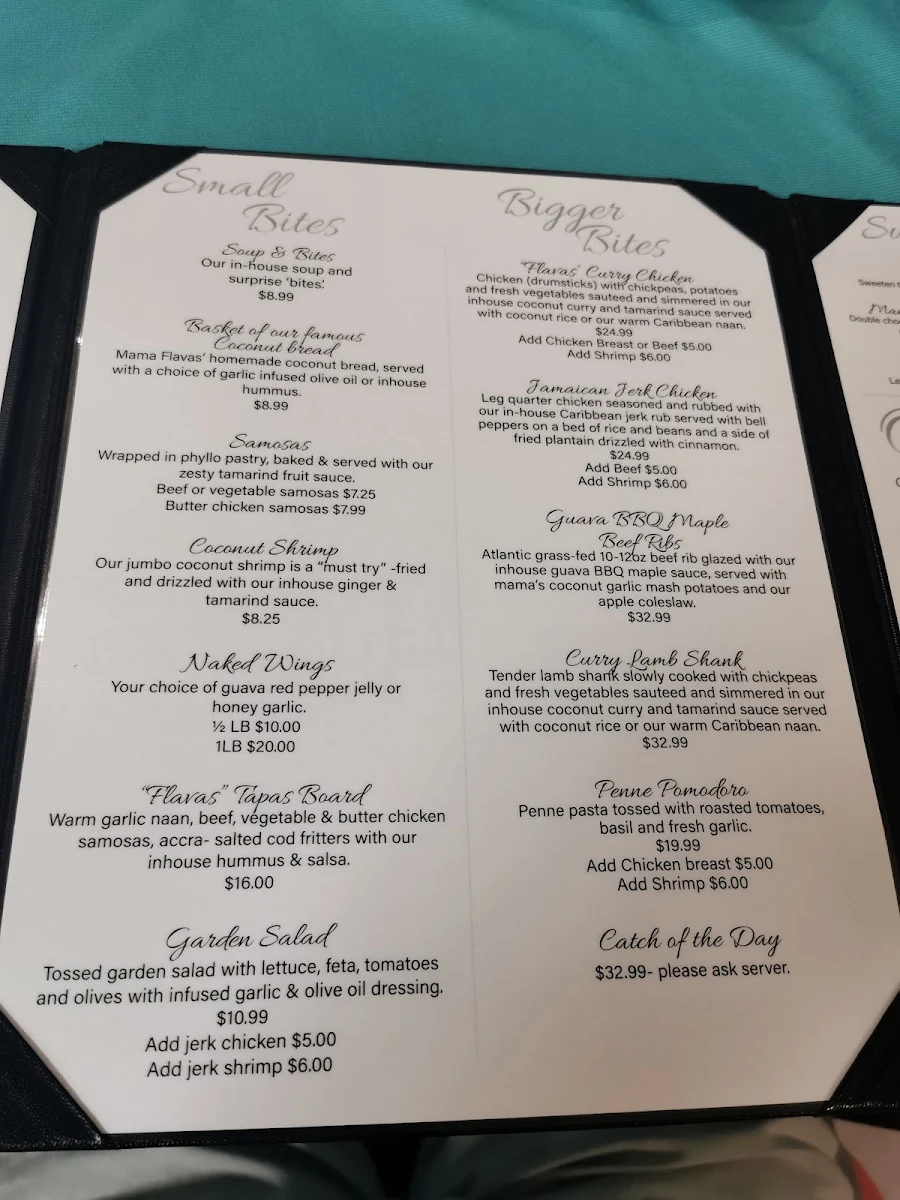 Small
Bites
Soup & Bites
Our in-house soup and
surprise 'bites'.
$8.99
Basket of our famous
Coconut bread
Mama Flavas' homemade coconut bread, served
with a choice of garlic infused olive oil or inhouse
hummus.
$8.99
Samosas
Wrapped in phyllo pastry, baked & served with our
zesty tamarind fruit sauce.
Beef or vegetable samosas $7.25
Butter chicken samosas $7.99
Coconut Shrimp
Our jumbo coconut shrimp is a "must try" -fried
and drizzled with our inhouse ginger &
tamarind sauce.
$8.25
Naked Wings
Your choice of guava red pepper jelly or
honey garlic.
½ LB $10.00
1LB $20.00
"Flavas" Tapas Board
Warm garlic naan, beef, vegetable & butter chicken
samosas, accra- salted cod fritters with our
inhouse hummus & salsa.
$16.00
Garden Salad
Tossed garden salad with lettuce, feta, tomatoes
and olives with infused garlic & olive oil dressing.
$10.99
Add jerk chicken $5.00
Add jerk shrimp $6.00
Bigger
Bites
"Flavas' Curry Chicken
Chicken (drumsticks) with chickpeas, potatoes
and fresh vegetables sauteed and simmered in our
inhouse coconut curry and tamarind sauce served
with coconut rice or our warm Caribbean naan.
$24.99
Add Chicken Breast or Beef $5.00
Add Shrimp $6.00
Jamaican Jerk Chicken
Leg quarter chicken seasoned and rubbed with
our in-house Caribbean jerk rub served with bell
peppers on a bed of rice and beans and a side of
fried plantain drizzled with cinnamon.
$24.99
Add Beef $5.00
Add Shrimp $6.00
Guava BBQ Maple
Beef Ribs
Atlantic grass-fed 10-12oz beef rib glazed with our
inhouse guava BBQ maple sauce, served with
mama's coconut garlic mash potatoes and our
apple coleslaw.
$32.99
Curry Lamb Shank
Tender lamb shank slowly cooked with chickpeas
and fresh vegetables sauteed and simmered in our
inhouse coconut curry and tamarind sauce served
with coconut rice or our warm Caribbean naan.
$32.99
Penne Pomodoro
Penne pasta tossed with roasted tomatoes,
basil and fresh garlic.
$19.99
Add Chicken breast $5.00
Add Shrimp $6.00
Catch of the Day
$32.99- please ask server.
Sweeten
Double